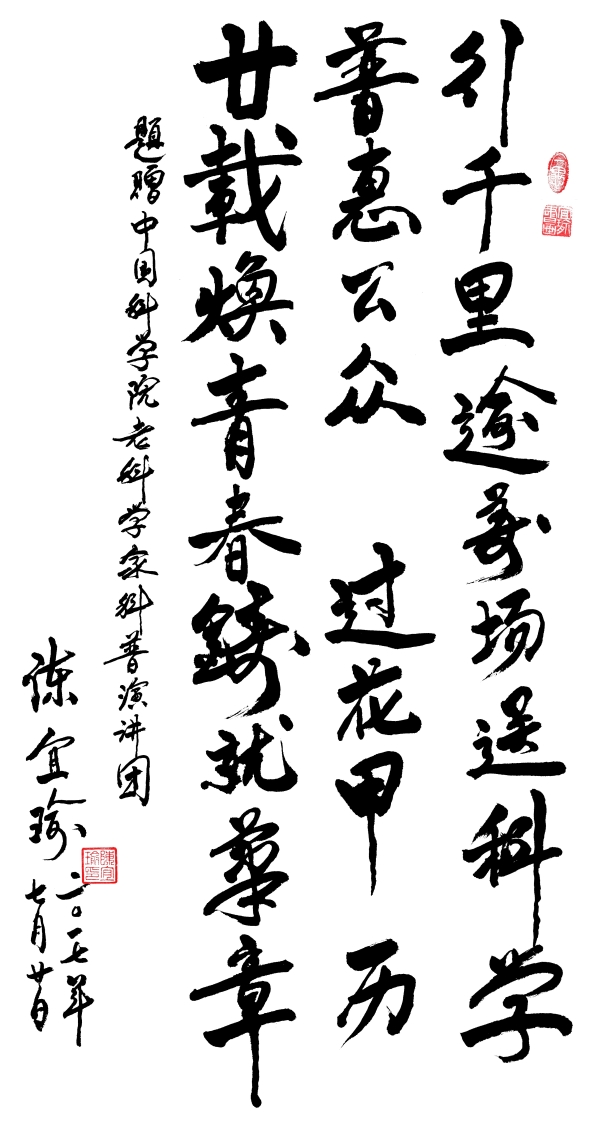 行千里逾萬场送科学
普惠公众 过花甲 历
廿載焕青春鑄就華章
題赠中国科学院老科学家科普演讲团
陈宜瑜
二〇一七年
七月廿日